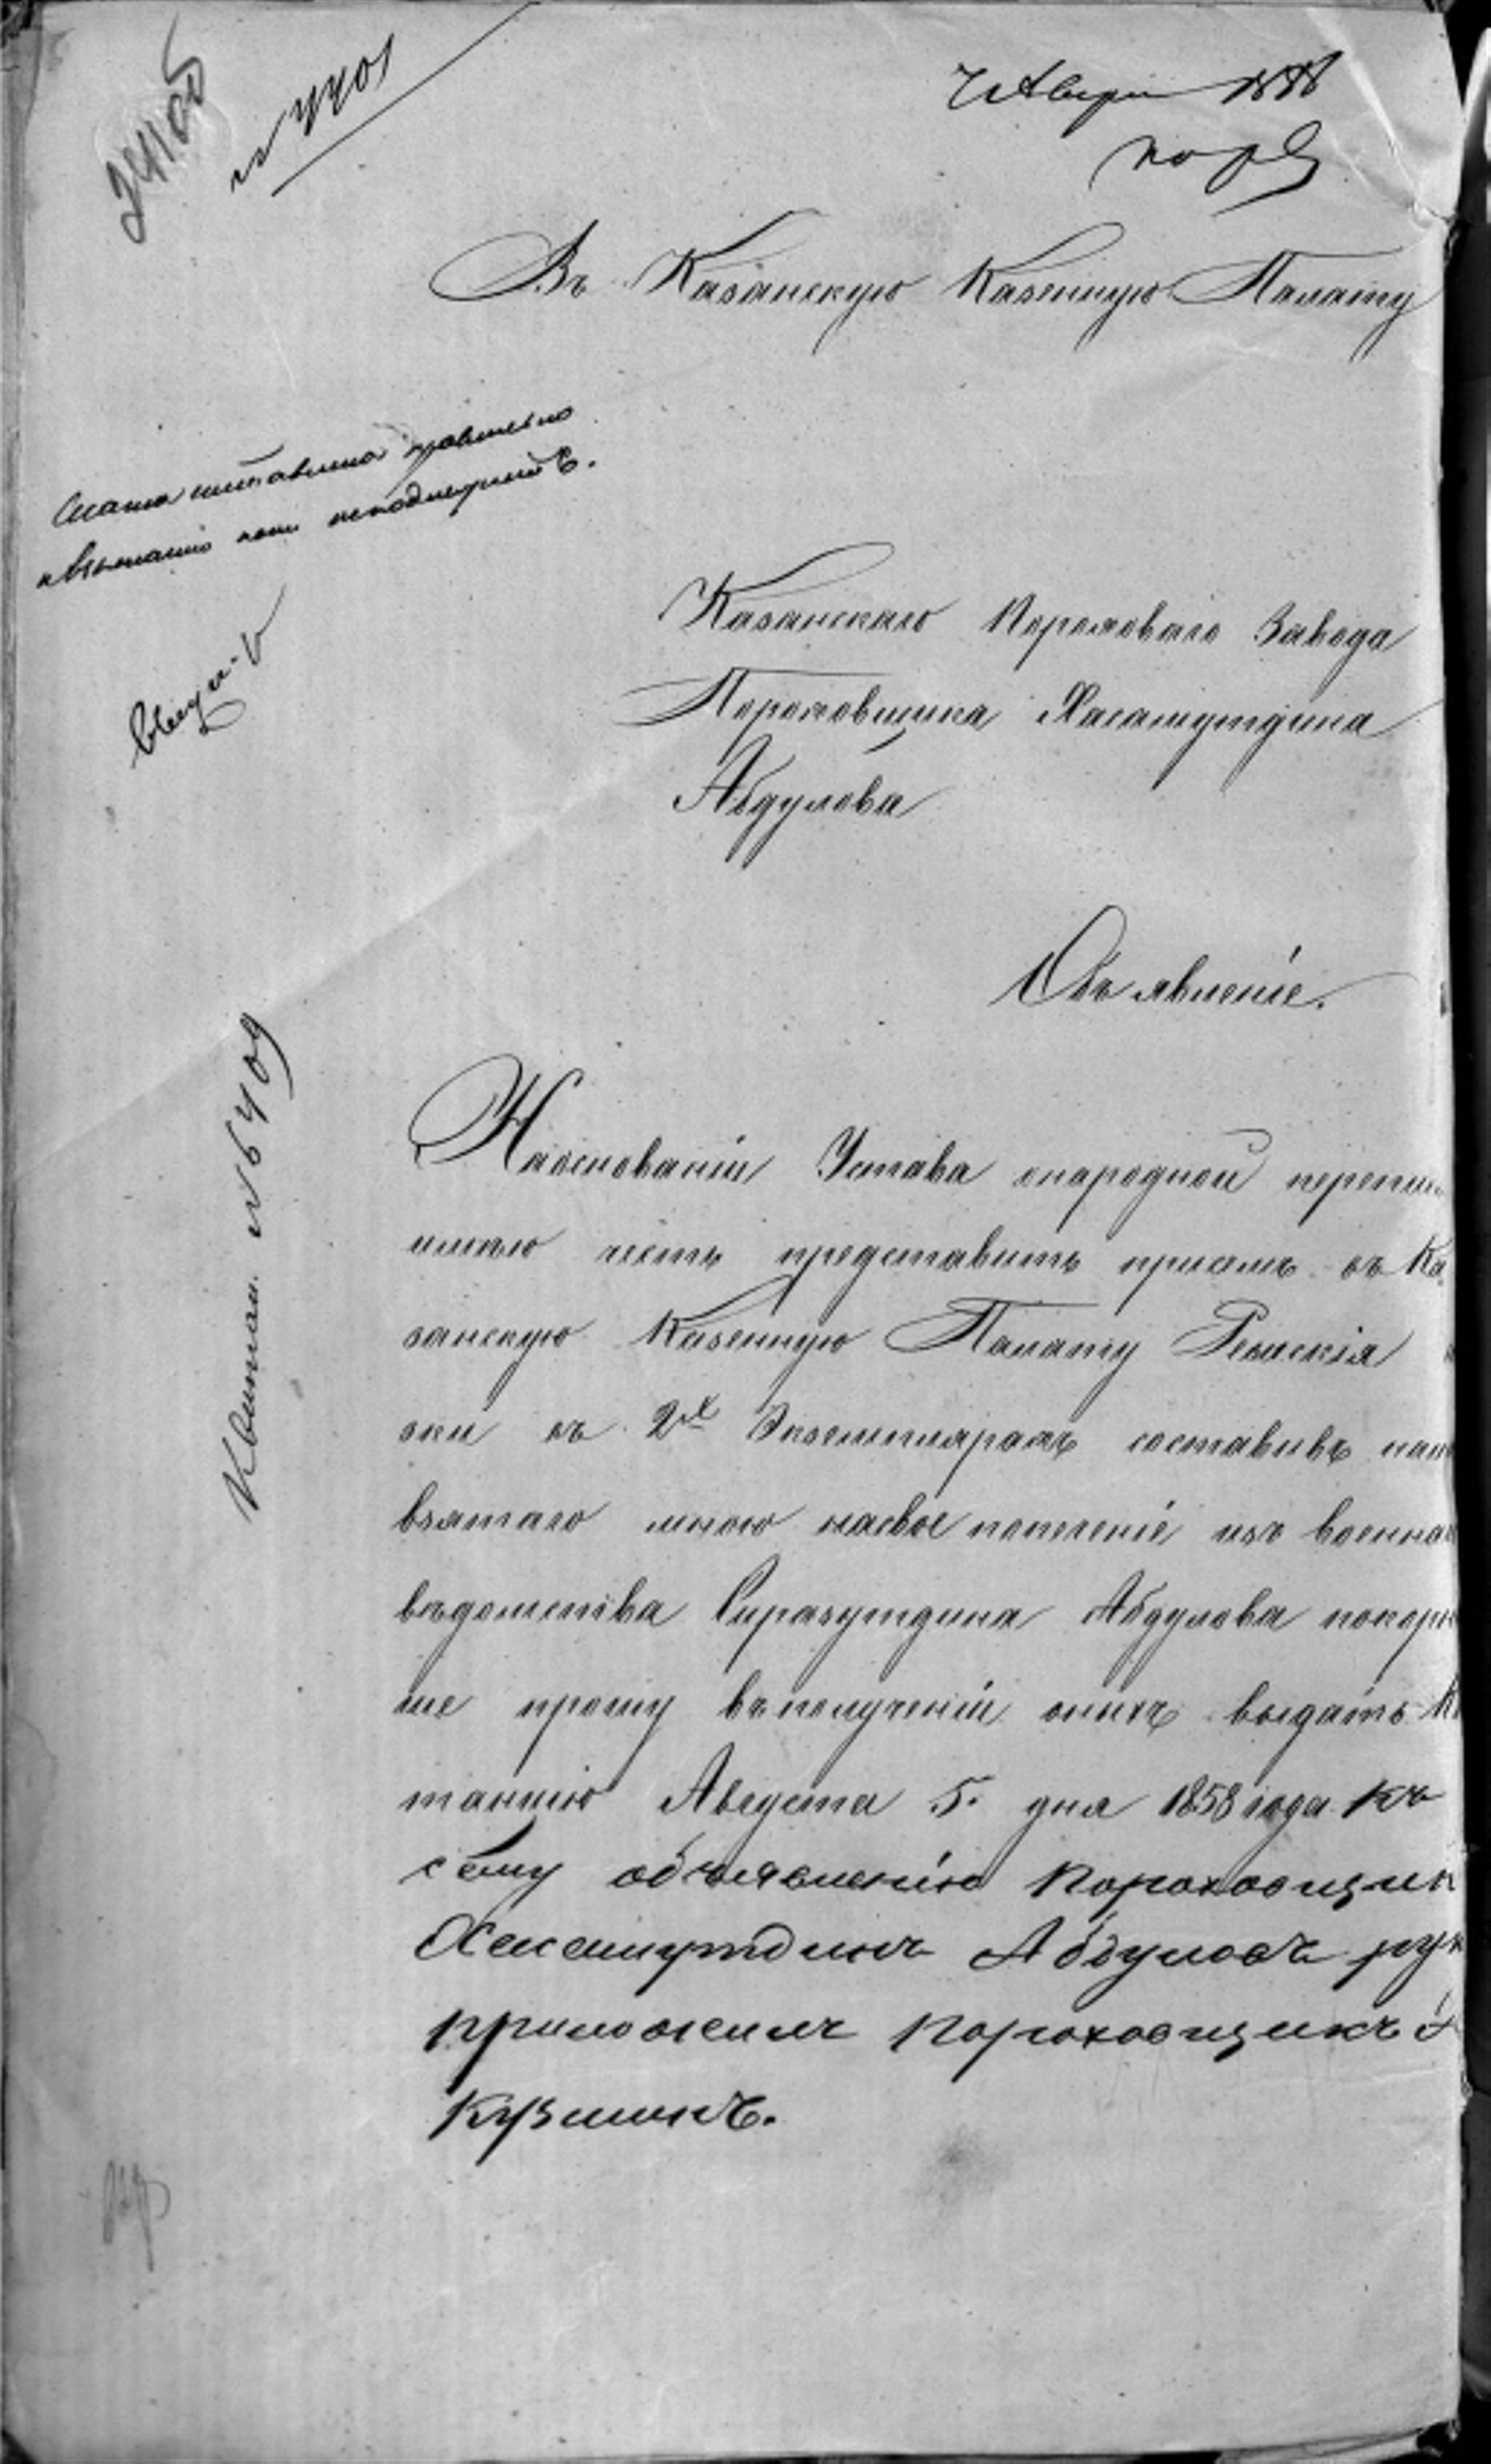 24106
№ 4401
7 Августа 1858
Въ Казанскую Казенную Палату
Сказка составлена правильно
и взысканію пени неподлежитъ.
Казанскаго Пороховаго Завода
Пороховщика Хасамутдина
Абдулова
Объявленіе.
Наоснованіи Устава онародной перепи
имѣю честь представить присемъ въ Ка
занскую Казенную Палату Ревизскія
зки въ 2х Экземплярахъ составивъ
взятаго мною насвое попеченіе изъ военна
вѣдомства Сиразутдина Абдулова покорн
ше прошу вполученіи оныхъ выдать К
танцію Августа 5. дня 1858 года Къ
сему объявленію Пороховщик
Хасамутдинъ Абдуловъ рук
приложилъ Пороховщикъ
Кузминъ.
Квитан. № 6409